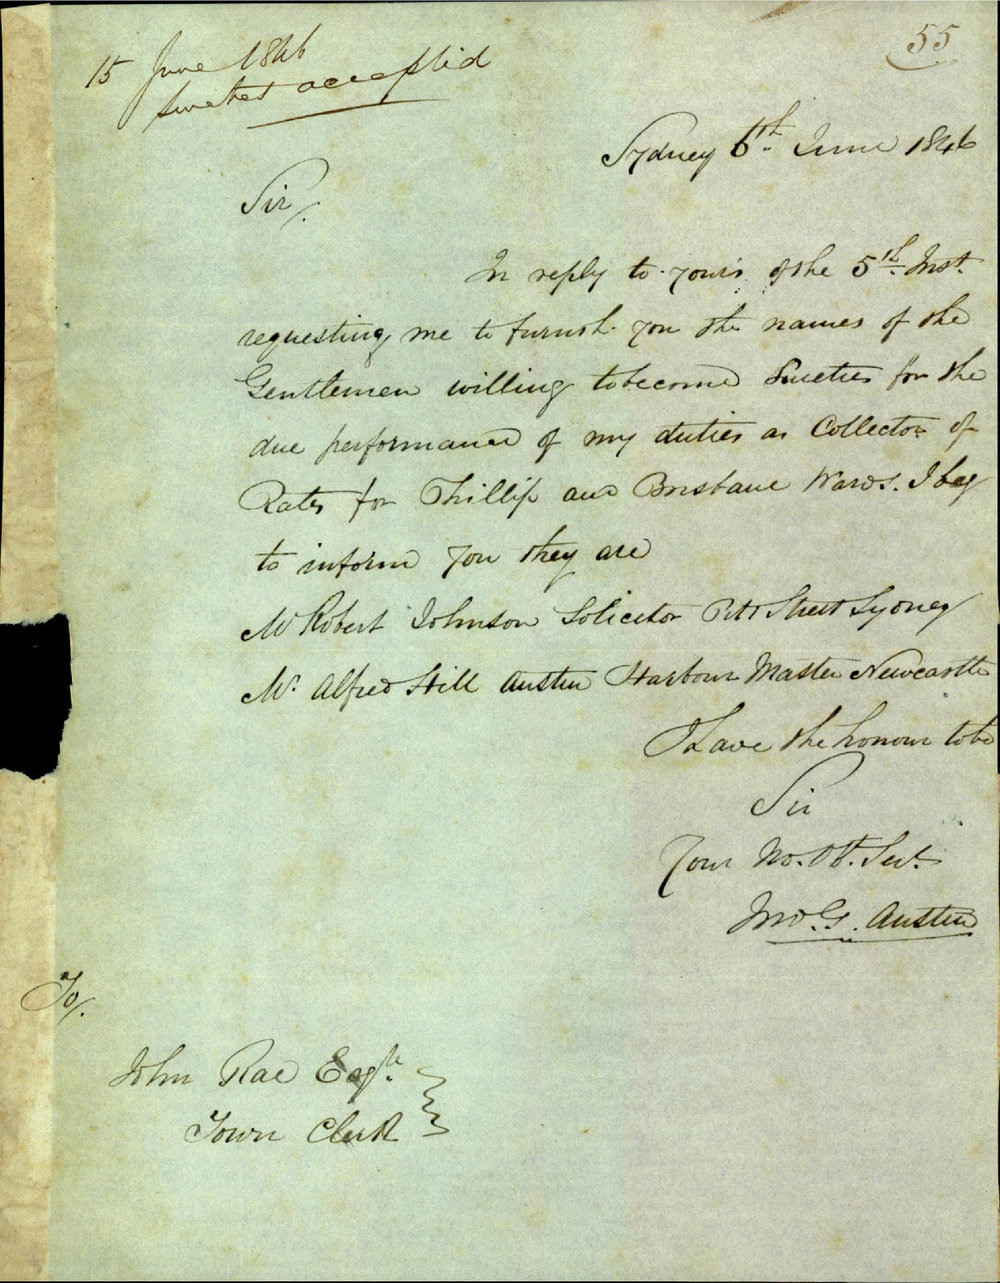 55
15 June 1846
Sureties accepted
Sydney 6th. June 1846
Sir/.
In reply to yours of the 5th. Inst.
requesting me to furnish you the names of the
Gentlemen willing to become Sureties for the
due performance of my duties as Collector of
Rates for Phillip and Brisbane Wards. I beg
to inform you they are
Mr Robert Johnson Solicitor Pitt Street Sydney
Mr. Alfred Hill Austin Harbour Master Newcastle
I have the honour to be
Sir
Your Mo. Ob. Sert.
Jno. G. Austin
To/.
John Rae Esqre.
Town Clerk